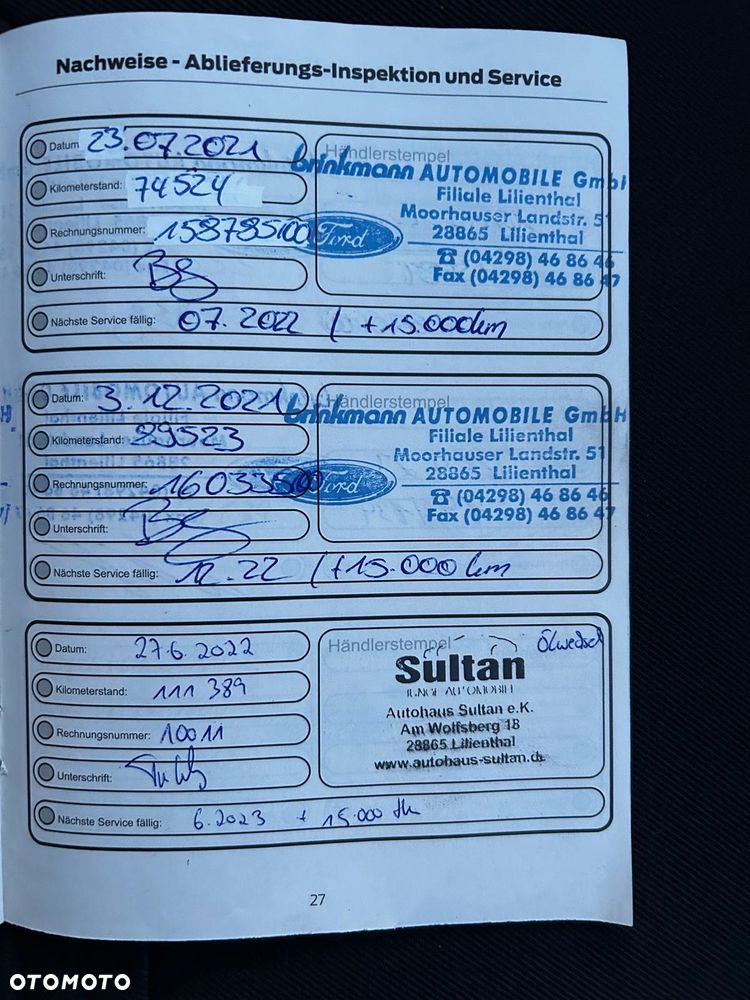 Nachweise - Ablieferungs-Inspektion und Service
Datum 23.07.2021
Kilometerstand: 74524
Rechnungsnummer: 158785100
Unterschrift:
Nächste Service fällig: 07.2022 / +15.000km
Händlerstempel
brinkmann AUTOMOBILE GmbH
Filiale Lilienthal
Moorhauser Landstr. 51
28865 Lilienthal
Ford
☎ (04298) 46 86 46
Fax (04298) 46 86 47
Datum: 3.12.2021
Kilometerstand: 89523
Rechnungsnummer: 160335100
Unterschrift:
Nächste Service fällig: 12.22 / +15.000 km
Händlerstempel
brinkmann AUTOMOBILE GmbH
Filiale Lilienthal
Moorhauser Landstr. 51
28865 Lilienthal
Ford
☎ (04298) 46 86 46
Fax (04298) 46 86 47
Datum: 27.6.2022
Kilometerstand: 111 389
Rechnungsnummer: 10011
Unterschrift:
Nächste Service fällig: 6.2023 + 15.000
Händlerstempel
Ölwechsel
Sultan
JUNGE AUTOMOBILE
Autohaus Sultan e.K.
Am Wolfsberg 18
28865 Lilienthal
www.autohaus-sultan.de
27
OTOMOTO